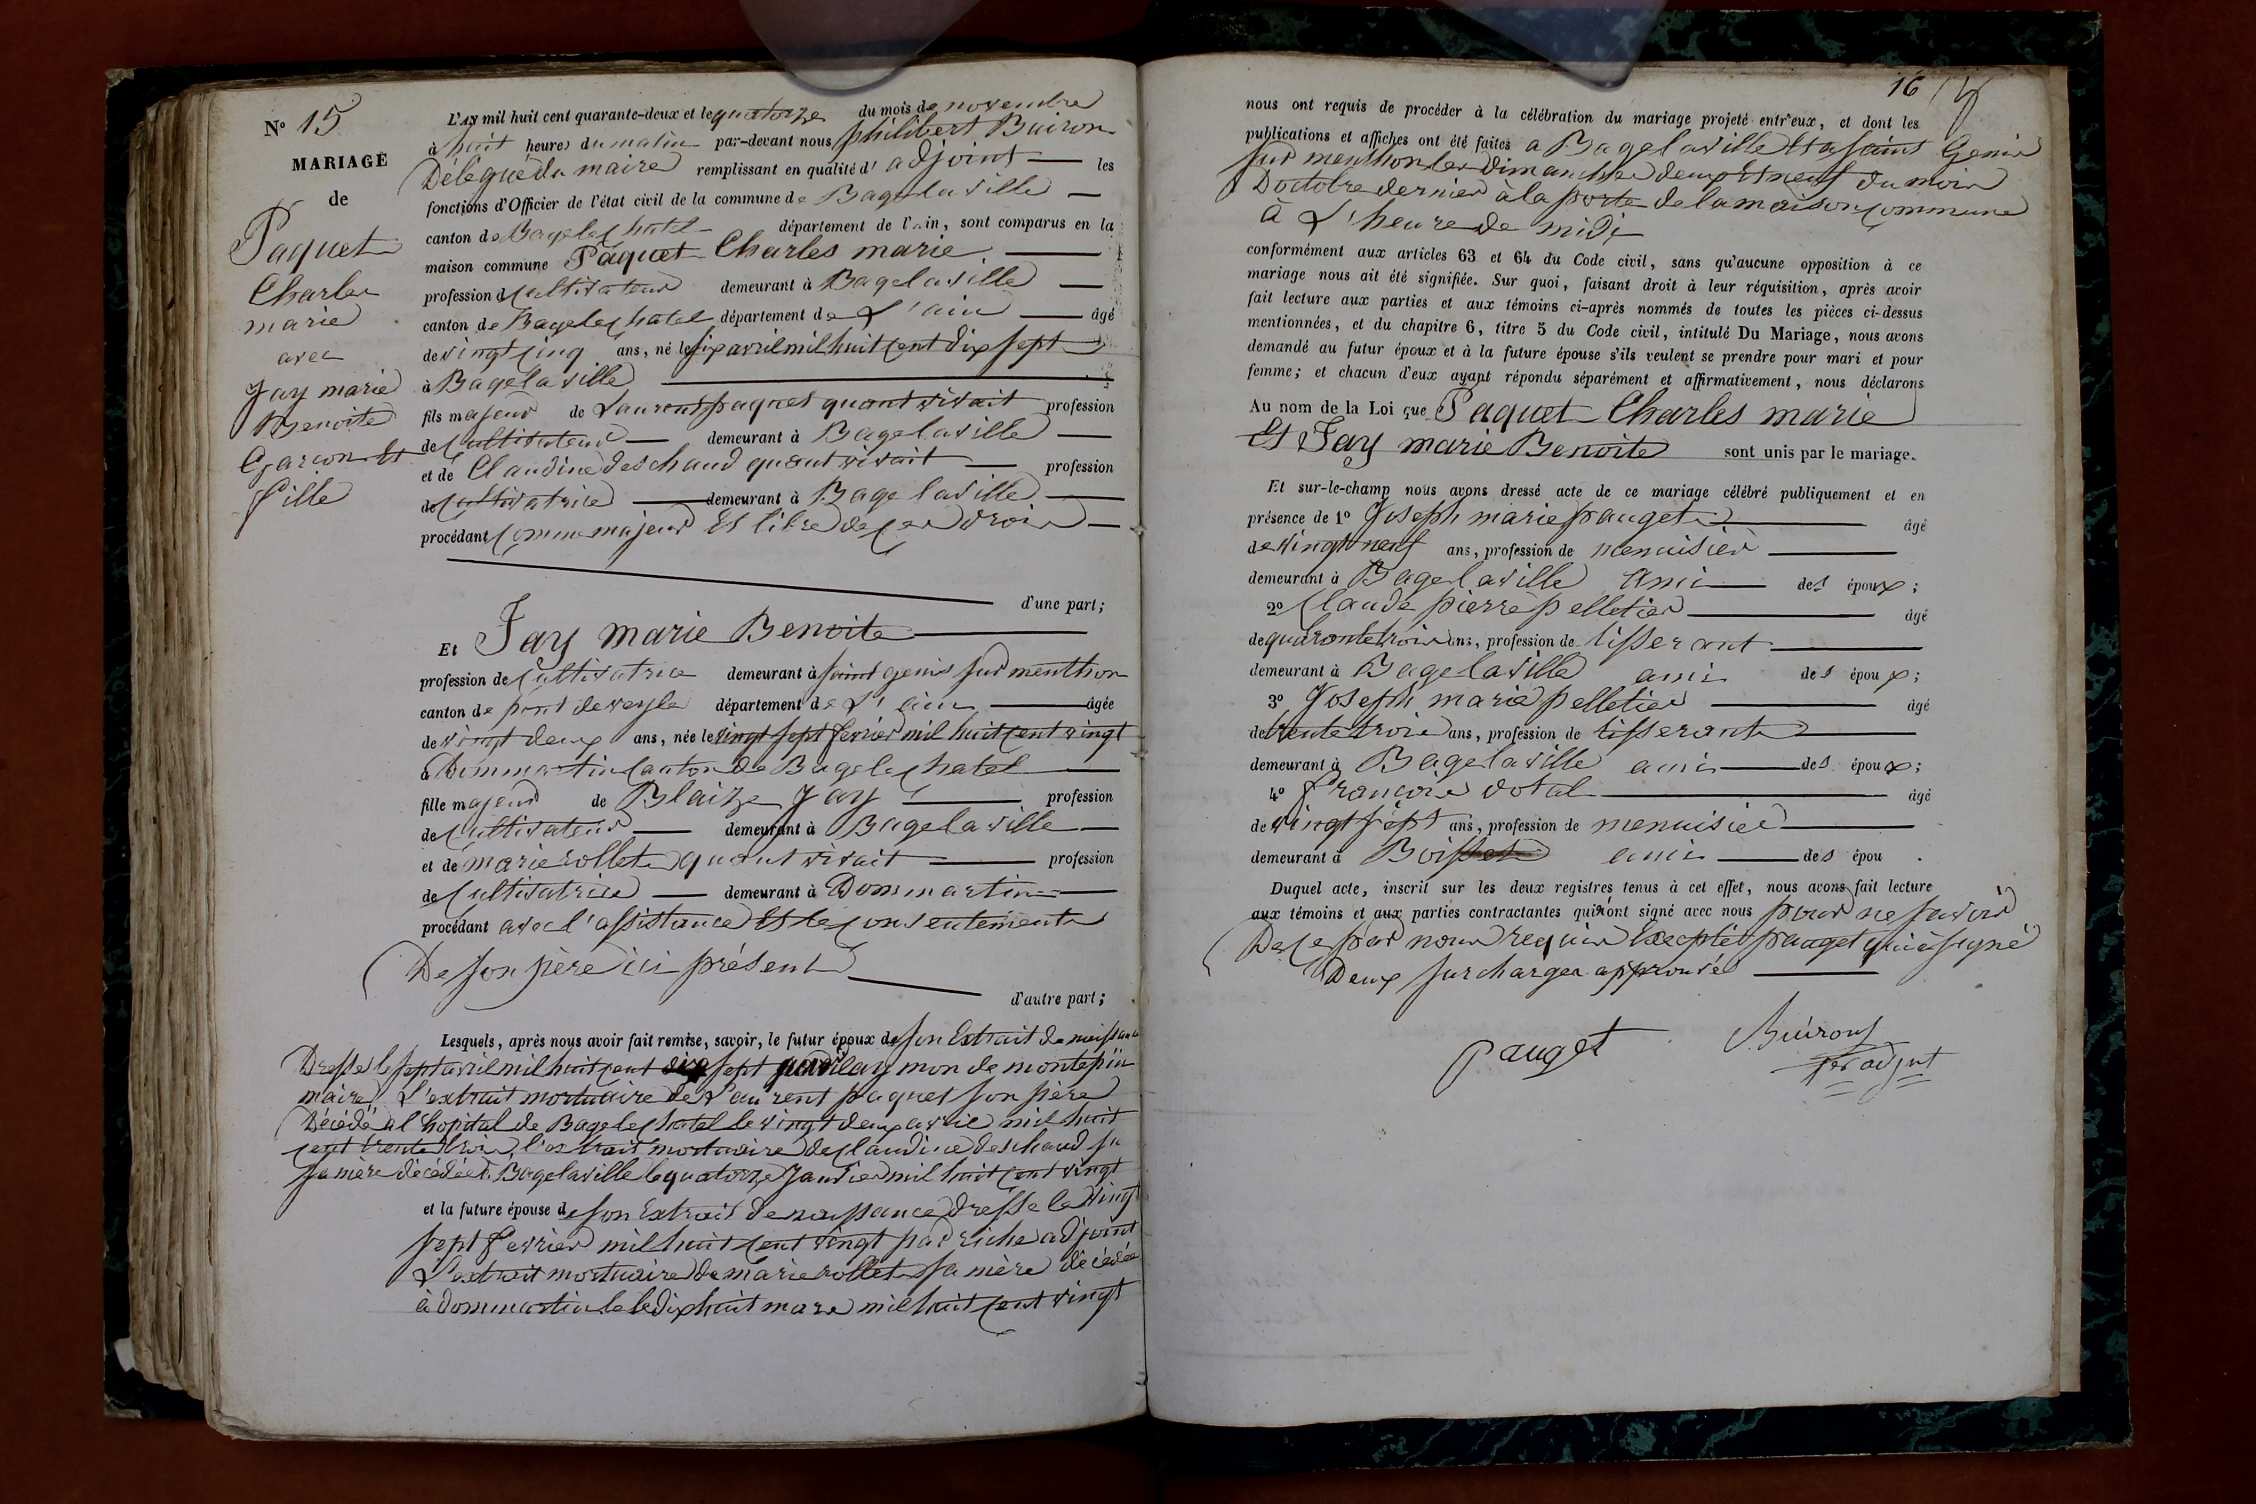 N° 15
MARIAGE
de
Paquet
Charles
marie
avec
Jay marie
Benoite
Garcon Et
fille
L'AN mil huit cent quarante-deux et le quatorze du mois de novembre
à huit heures du matin par-devant nous philibert Buiron
Délégué du maire remplissant en qualité d'adjoint les
fonctions d'Officier de l'état civil de la commune de Bagelaville
canton de Bagelechatel département de l'Ain, sont comparus en la
maison commune Paquet Charles marie
profession de cultivateur demeurant à Bagelaville
canton de Bagelechatel département de L'ain âgé
de vingt cinq ans, né le six avril mil huit cent dix sept
à Bagelaville
fils majeur de Laurent paquet quant vivait profession
de cultivateur demeurant à Bagelaville
et de Claudine deschaud quant vivait profession
de cultivatrice demeurant à Bagelaville
procédant comme majeur Et libre de ces droir
d'une part;
Et Jay marie Benoite
profession de cultivatrice demeurant à saint genis sur menthon
canton de pont de veyle département de L'ain âgée
de vingt deux ans, née le vingt sept fevrier mil huit cent vingt
à Dommartin canton de Bagelechatel
fille majeur de Blaize Jay profession
de cultivateur demeurant à Bagelaville
et de marie rollet quant vivait profession
de cultivatrice demeurant à Dommartin
procédant avec l'assistance Et le consentement
De son père ici présent
d'autre part;
Lesquels, après nous avoir fait remise, savoir, le futur époux de son Extrait de naissance
Dresse le sept avril mil huit cent dix sept par aymon de montepin
maire L'extrait mortuaire de Laurent paquet son père
Décédé a l'hopital de Bagelechatel le vingt deux avril mil huit
cent trente trois, l'extrait mortuaire de claudine deschaud sa
sa mère décédée à Bagelaville le quatorze Janvier mil huit cent vingt
et la future épouse de son Extrait de naissance dresse le vingt
sept fevrier mil huit cent vingt par riche adjoint
L'extrait mortuaire de marie rollet sa mère décédée
à dommartin le le dix huit mars mil huit cent vingt
16
nous ont requis de procéder à la célébration du mariage projeté entr'eux, et dont les
publications et affiches ont été faites a Bagelaville Et a saint Genis
sur menthon les dimanches deux Et neuf du mois
D'octobre dernier à la porte de la maison commune
à L'heure de midi
conformément aux articles 63 et 64 du Code civil, sans qu'aucune opposition à ce
mariage nous ait été signifiée. Sur quoi, faisant droit à leur réquisition, après avoir
fait lecture aux parties et aux témoins ci-après nommés de toutes les pièces ci-dessus
mentionnées, et du chapitre 6, titre 5 du Code civil, intitulé Du Mariage, nous avons
demandé au futur époux et à la future épouse s'ils veulent se prendre pour mari et pour
femme; et chacun d'eux ayant répondu séparément et affirmativement, nous déclarons
Au nom de la Loi que Paquet Charles marie
Et Jay marie Benoite sont unis par le mariage.
Et sur-le-champ nous avons dressé acte de ce mariage célébré publiquement et en
présence de 1° Joseph marie pauget âgé
de vingt neuf ans, profession de menuisier
demeurant à Bagelaville ami des époux;
2° Claude pierre pelletier âgé
de quaronte trois ans, profession de tisserant
demeurant à Bagelaville ami des époux;
3° Joseph marie pelletier âgé
de trente trois ans, profession de tisserant
demeurant à Bagelaville ami des époux;
4° françois votal âgé
de vingt sept ans, profession de menuisier
demeurant à ami des épou .
Duquel acte, inscrit sur les deux registres tenus à cet effet, nous avons fait lecture
aux témoins et aux parties contractantes qui n'ont signé avec nous pour ne savoir
De ce par nous requis Excepté pauget qui a signé
Deux surcharges approuvée
Pauget Buiron
1er adjnt